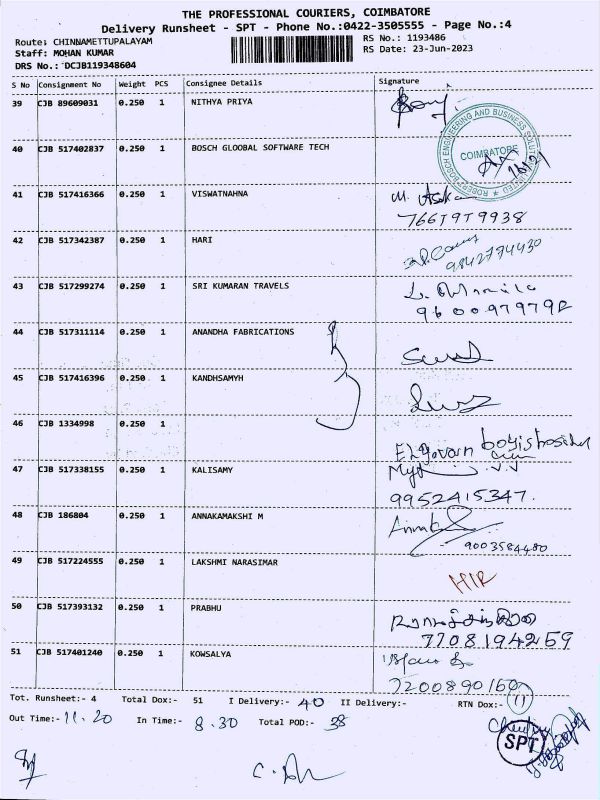 THE PROFESSIONAL COURIERS, COIMBATORE
Delivery Runsheet - SPT - Phone No.:0422-3505555 - Page No.:4
Route: CHINNAMETTUPALAYAM
RS No.: 1193486
Staff: MOHAN KUMAR
RS Date: 23-Jun-2023
DRS No.: DCJB119348604
S No Consignment No Weight PCS Consignee Details Signature
39 CJB 89609031 0.250 1 NITHYA PRIYA
40 CJB 517402837 0.250 1 BOSCH GLOOBAL SOFTWARE TECH
ROBERT BOSCH ENGINEERING AND BUSINESS SOLUTIONS LIMITED
COIMBATORE
41 CJB 517416366 0.250 1 VISWATNAHNA
7661979938
42 CJB 517342387 0.250 1 HARI
9842794430
43 CJB 517299274 0.250 1 SRI KUMARAN TRAVELS
9600979792
44 CJB 517311114 0.250 1 ANANDHA FABRICATIONS
45 CJB 517416396 0.250 1 KANDHSAMYH
46 CJB 1334998 0.250 1
47 CJB 517338155 0.250 1 KALISAMY
9952415347.
48 CJB 186804 0.250 1 ANNAKAMAKSHI M
9003584480
49 CJB 517224555 0.250 1 LAKSHMI NARASIMAR
50 CJB 517393132 0.250 1 PRABHU
7708194259
51 CJB 517401240 0.250 1 KOWSALYA
7200890160
Tot. Runsheet:- 4 Total Dox:- 51 I Delivery:- 40 II Delivery:- RTN Dox:- 11
Out Time:- 11.20 In Time:- 8.30 Total POD:- 38
SPT